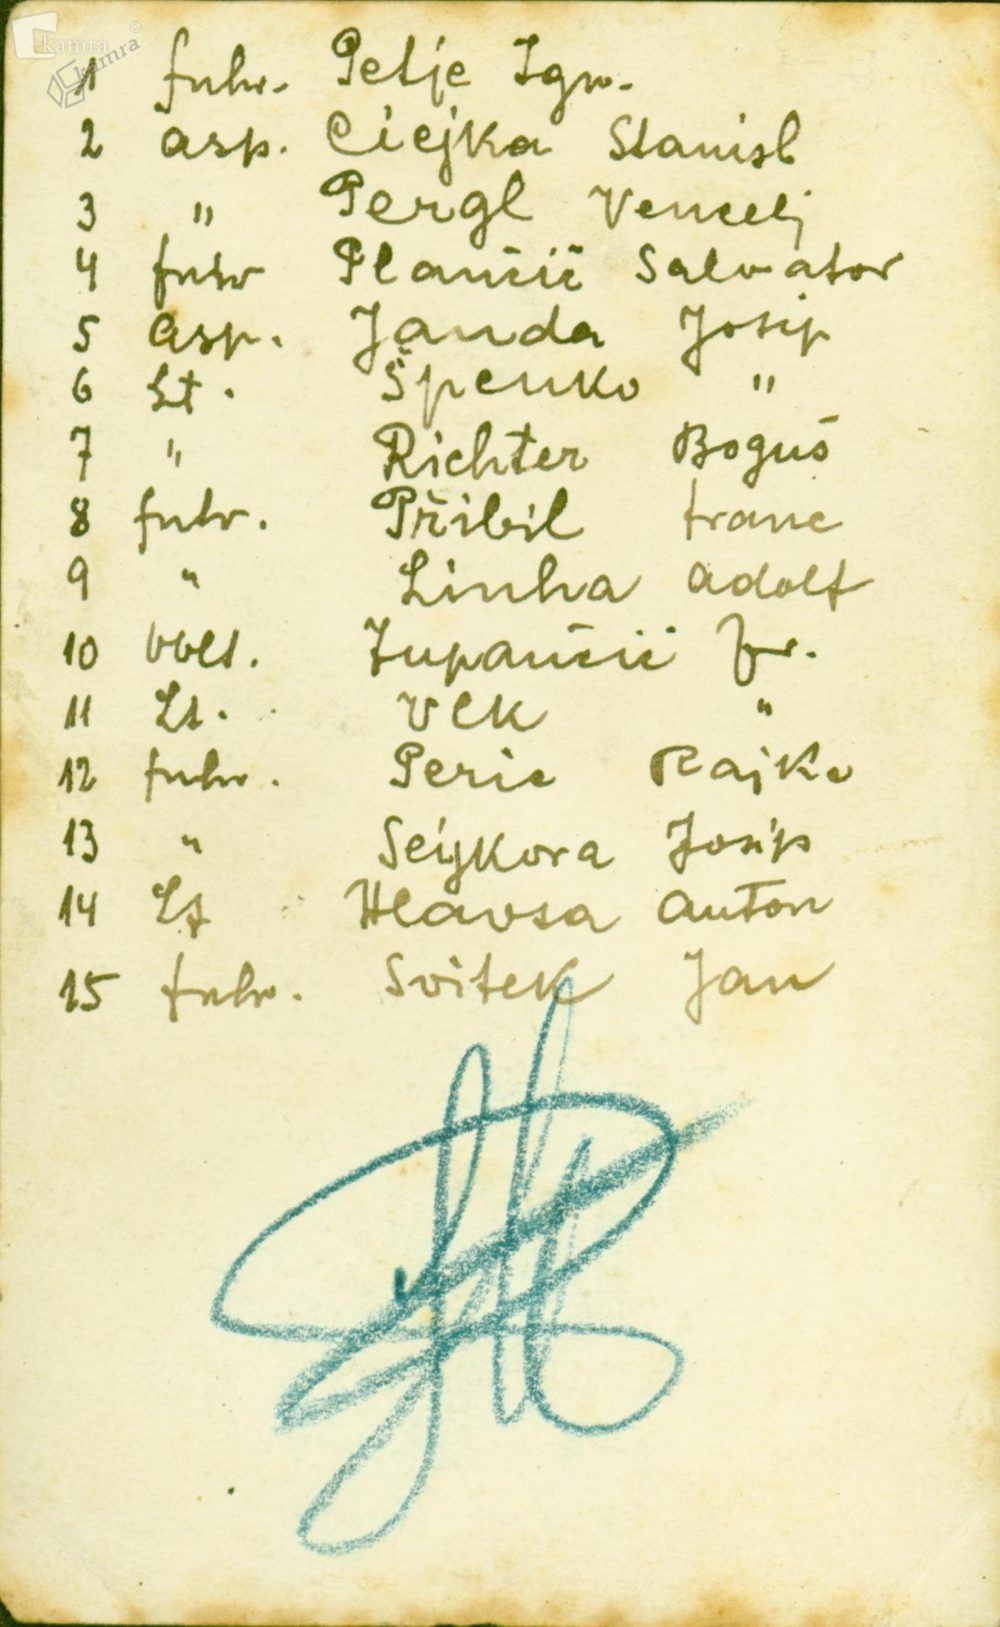 kamra
kamra ©
1 fuhr. Petje Ign.
2 asp. Ciejka Stanisl
3 " Pergl Vencelj
4 fuhr Plančić Salvator
5 asp. Janda Josip
6 Lt. Špenko "
7 " Richter Boguš
8 fuhr. Přibil franc
9 " Linha adolf
10 oblt. Zupančić fr.
11 Lt. Vlk "
12 fuhr. Peric Rajko
13 " Sejkora Josip
14 Lt Hlavsa anton
15 fuhr. Svitek Jan